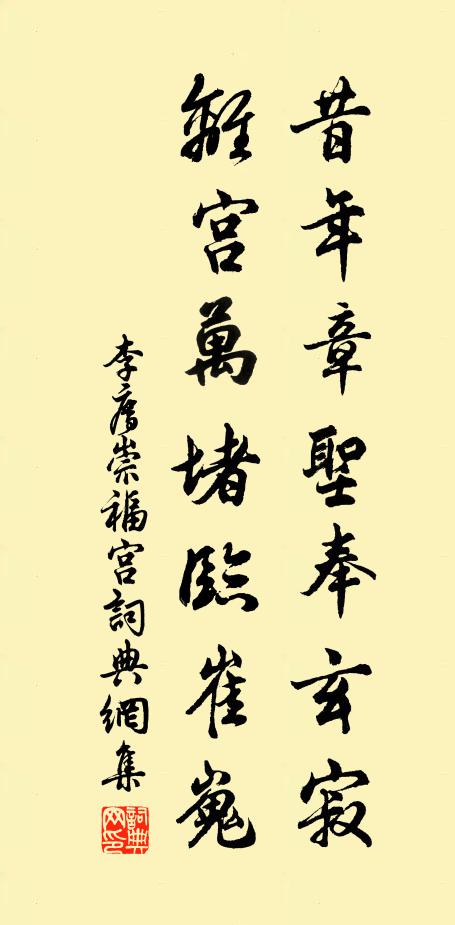 昔年章聖奉玄寂
離宮萬堵臨崔嵬
李廌崇福宮詞典網集
詞典網印